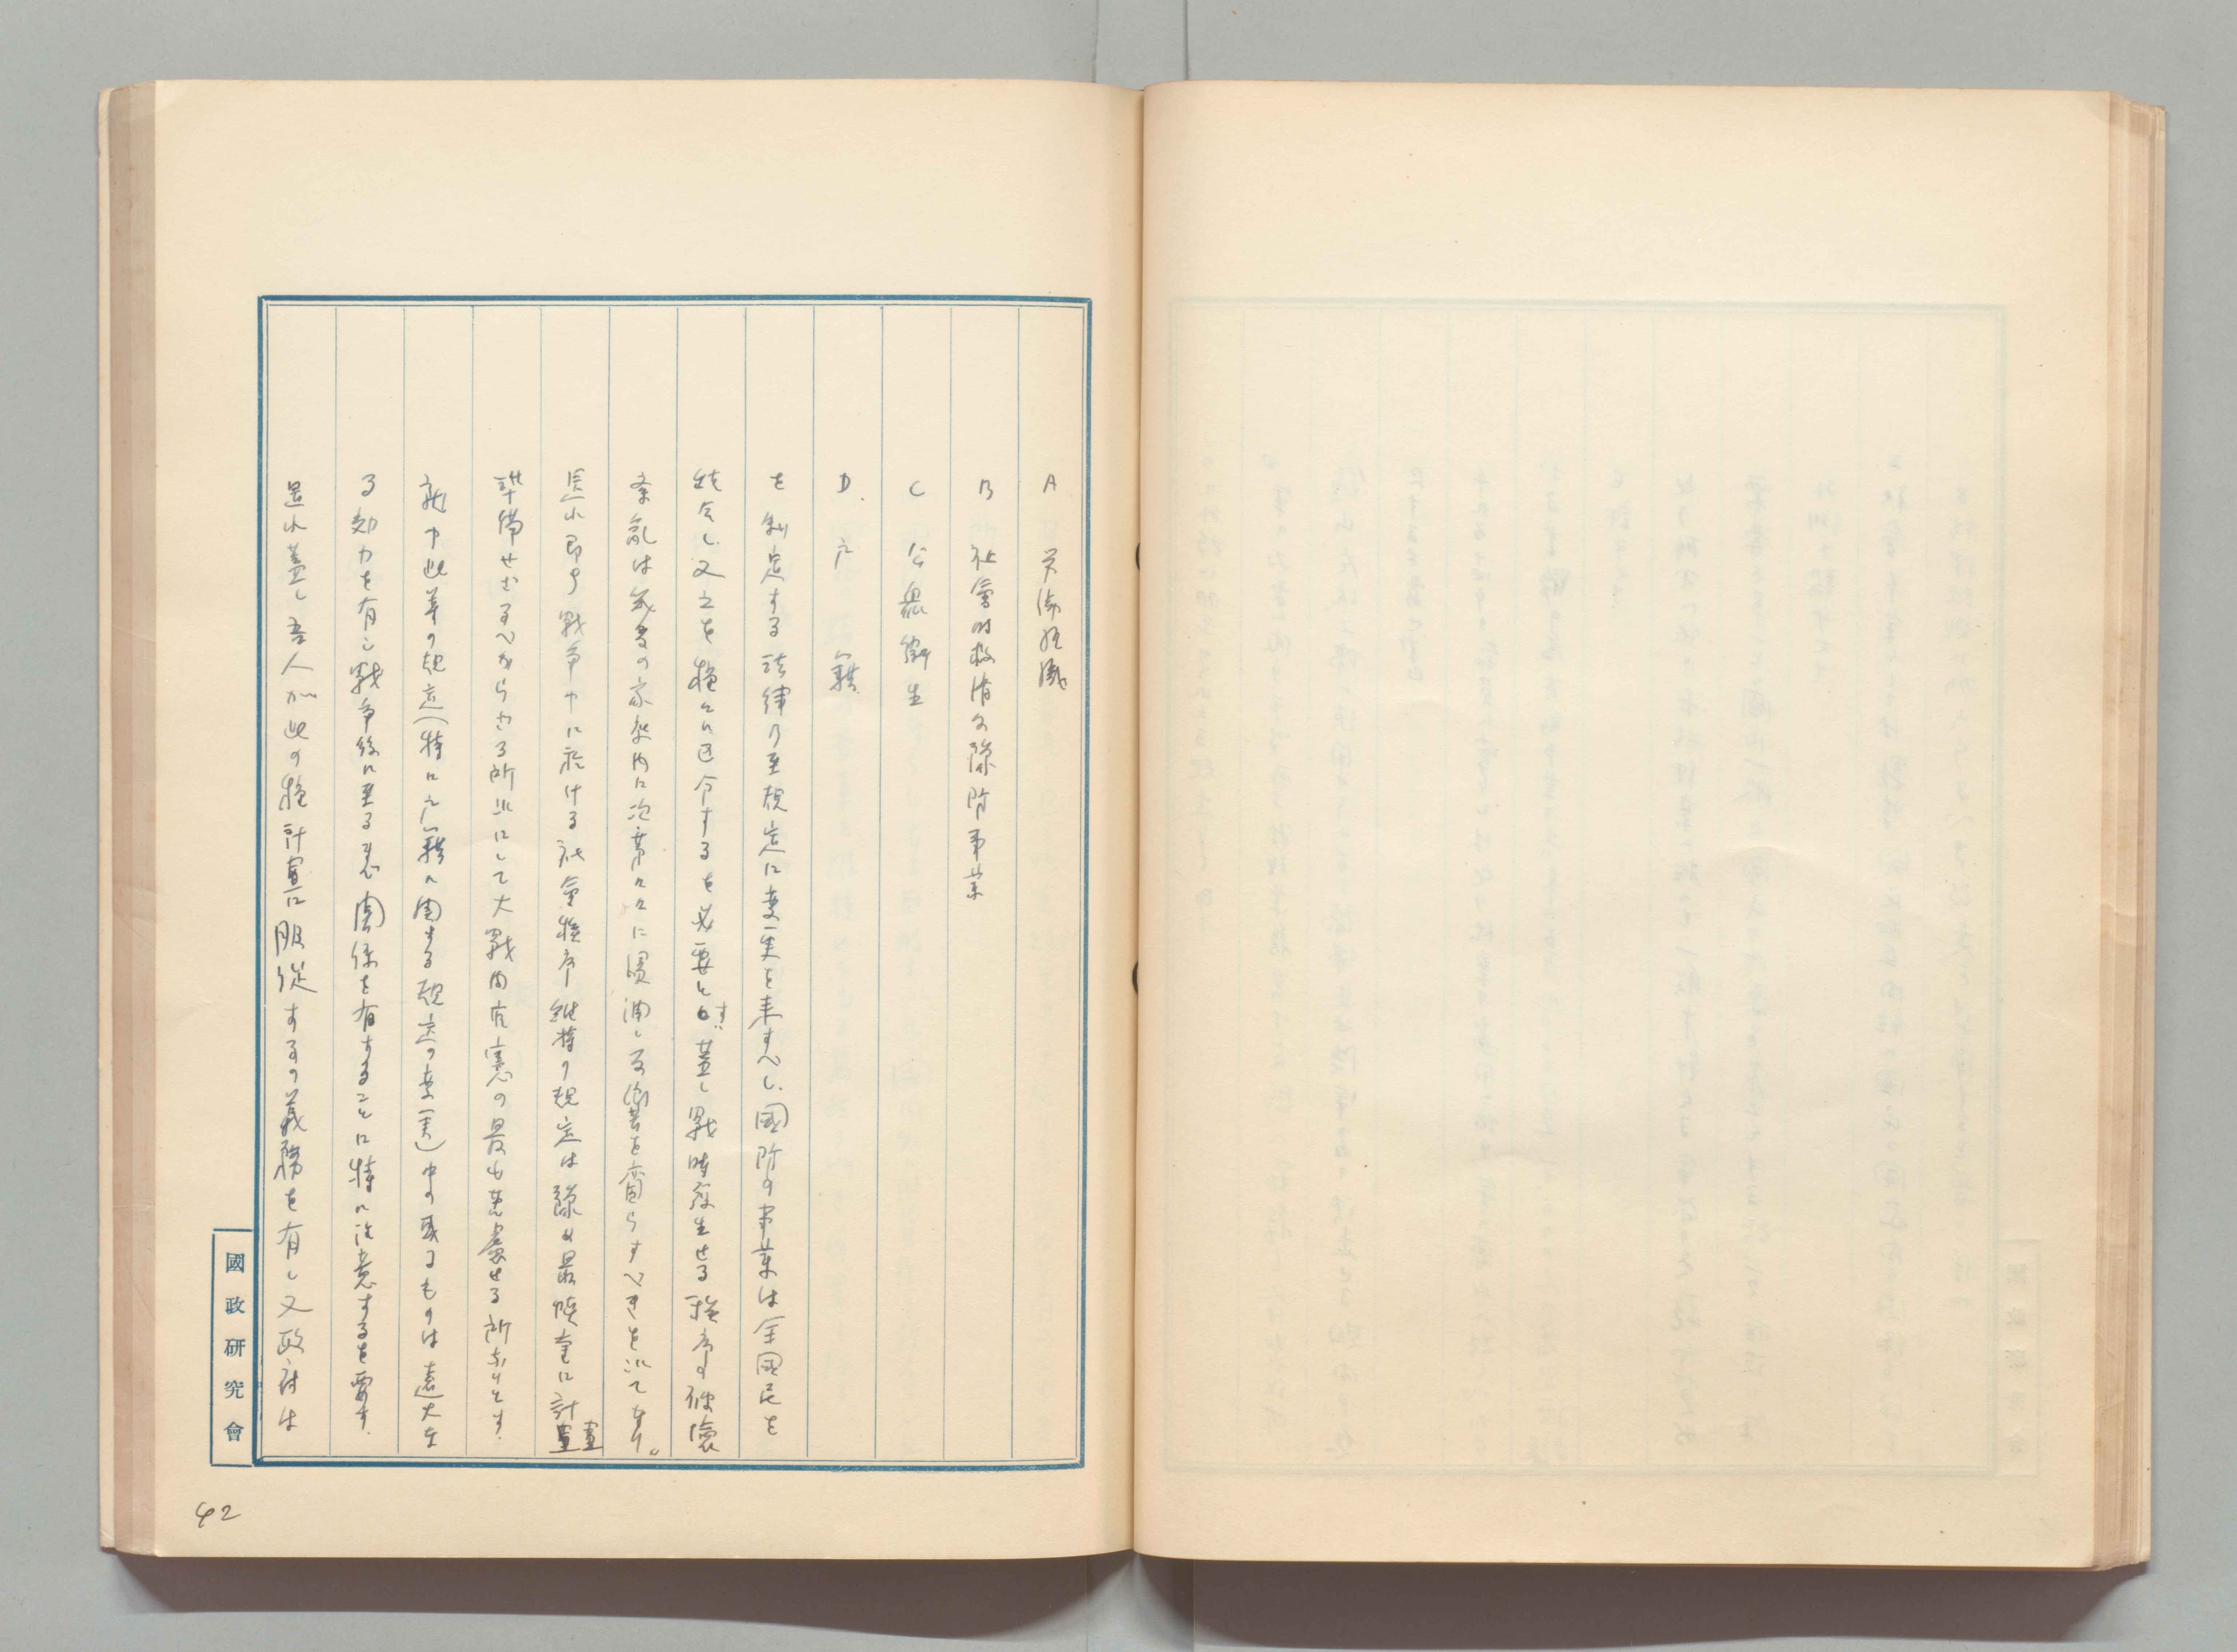 A 労働組織
B 社會的救済及豫防事業
C 公衆衛生
D. 戸籍
を制定する法律乃至規定に変更を来すべし、國防の事業は全國民を
統合し又之を種々に区分するを必要とす、蓋し戦時発生せる秩序の破壊
紊乱は無数の家族内に次第々々に浸潤し 弊害を齎らすべきを以てなり。
是れ即ち戦争中に於ける社會秩序維持の規定は豫め最慎重に計畫
準備せざるべからざる所以にして大戦内官憲の最も苦慮せる所なりとす.
就中此等の規定(特に戸籍に関する規定の変更)中の或るものは遠大な
る効力を有し戦争後に至る迄関係を有することに特に注意するを要す.
是れ蓋し吾人が此の種計畫に服従するの義務を有し又政府は
國政研究會
42